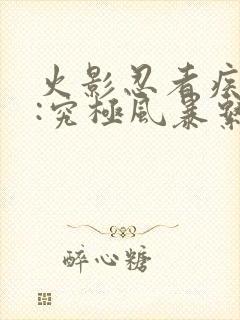 火影忍者疾
:究極風暴繫
醉心糖